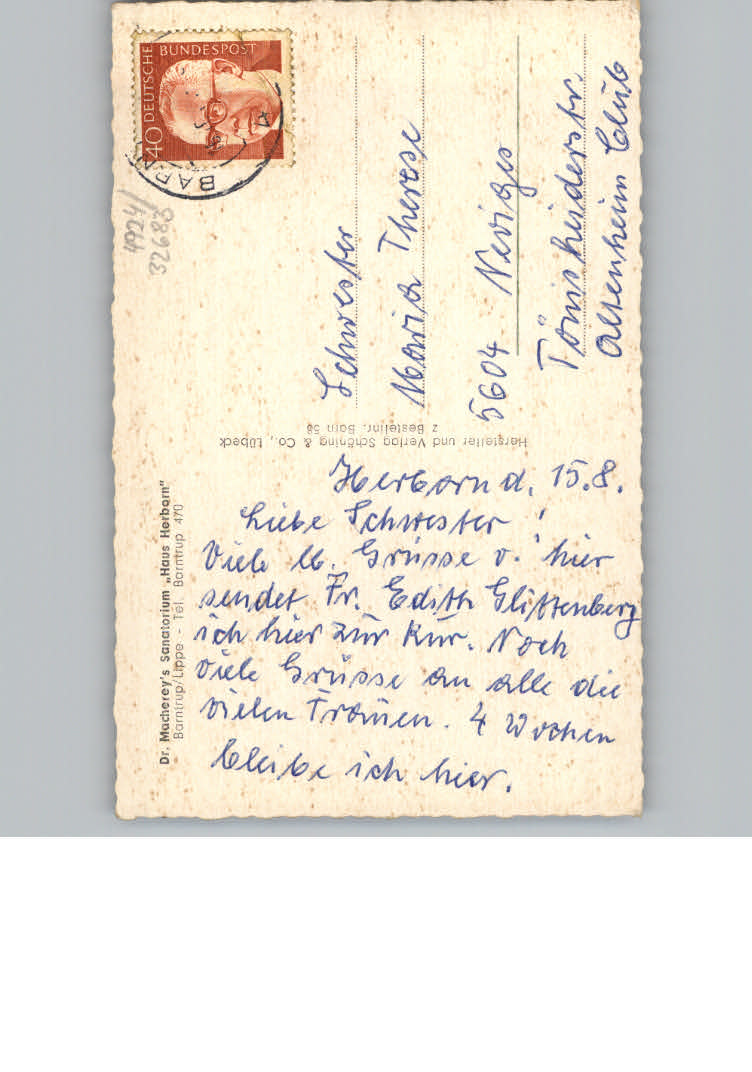 Dr. Macherey's Sanatorium „Haus Herborn"
Barntrup/Lippe - Tel. Barntrup 470
Herborn d. 15.8.
Liebe Schwester!
Viele lb. Grüsse v. hier
sendet Fr. Edith Glittenberg
ich hier zur Kur. Noch
viele Grüsse an alle die
vielen Frauen. 4 Wochen
bleibe ich hier.
Hersteller und Verlag Schöning & Co., Lübeck
z Bestellnr. Barn 58
DEUTSCHE BUNDESPOST
40
BARN
4
4924/
32683
Schwester
Maria Therese
5604 Neviges
Tönisheiderstr.
Altenheim Club